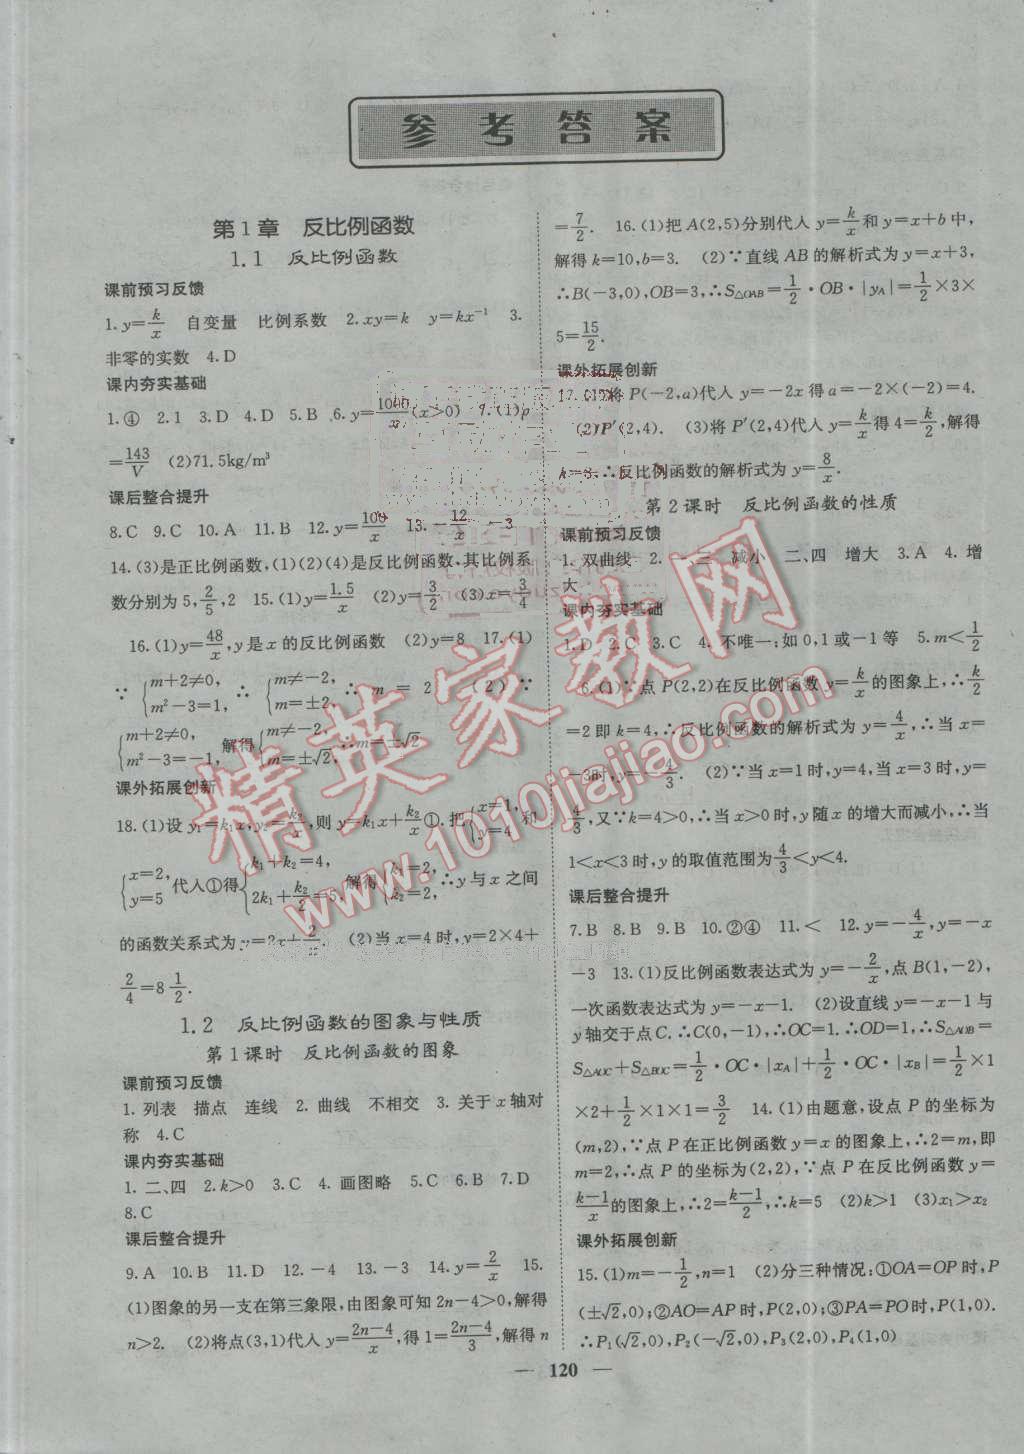 参考答案
第1章 反比例函数
1.1 反比例函数
课前预习反馈
1. y=k/x 自变量 比例系数 2. xy=k y=kx⁻¹ 3.
非零的实数 4. D
课内夯实基础
1. ④ 2. 1 3. D 4. D 5. B 6. y=1000/x(x>0) 7. (1)ρ
=143/V (2)71.5kg/m³
课后整合提升
8. C 9. C 10. A 11. B 12. y=100/x 13. -12/x -3
14. (3)是正比例函数,(1)(2)(4)是反比例函数,其比例系
数分别为5,2/5,2 15. (1)y=1.5/x (2)y=3/2 (3)x=3/4
16. (1)y=48/x,y是x的反比例函数 (2)y=8 17. (1)
∵{m+2≠0, m²-3=1, ∴{m≠-2, m=±2, ∴m=2 (2)∵
{m+2≠0, m²-3=-1, 解得{m≠-2, m=±√2, ∴m=±√2
课外拓展创新
18. (1)设y₁=k₁x,y₂=k₂/x,则y=k₁x+k₂/x①. 把{x=1, y=4 和
{x=2, y=5 代入①得{k₁+k₂=4, 2k₁+k₂/2=5, 解得{ ∴y与x之间
的函数关系式为y=2x+2/x. (2)当x=4时,y=2×4+
2/4=8 1/2.
1.2 反比例函数的图象与性质
第1课时 反比例函数的图象
课前预习反馈
1. 列表 描点 连线 2. 曲线 不相交 3. 关于x轴对
称 4. C
课内夯实基础
1. 二、四 2. k>0 3. C 4. 画图略 5. C 6. B 7. D
8. C
课后整合提升
9. A 10. B 11. D 12. -4 13. -3 14. y=2/x 15.
(1)图象的另一支在第三象限,由图象可知2n-4>0,解得
n>2. (2)将点(3,1)代入y=(2n-4)/x,得1=(2n-4)/3,解得n
=7/2. 16. (1)把A(2,5)分别代入y=k/x和y=x+b中,
解得k=10,b=3. (2)∵直线AB的解析式为y=x+3,
∴B(-3,0),OB=3,∴S△OAB=1/2·OB·|yA|=1/2×3×
5=15/2.
课外拓展创新
17. (1)将P(-2,a)代入y=-2x得a=-2×(-2)=4.
(2)P′(2,4). (3)将P′(2,4)代入y=k/x得4=k/2,解得
k=8,∴反比例函数的解析式为y=8/x.
第2课时 反比例函数的性质
课前预习反馈
1. 双曲线 2. 一、三 减小 二、四 增大 3. A 4. 增
大
课内夯实基础
1. D 2. C 3. C 4. 不唯一;如0,1或-1等 5. m<1/2
6. (1)∵点P(2,2)在反比例函数y=k/x的图象上,∴k/2
=2即k=4,∴反比例函数的解析式为y=4/x,∴当x=
-3时,y=-4/3. (2)∵当x=1时,y=4,当x=3时,y=
4/3,又∵k=4>0,∴当x>0时,y随x的增大而减小,∴当
1<x<3时,y的取值范围为4/3<y<4.
课后整合提升
7. B 8. B 9. B 10. ②④ 11. < 12. y=-4/x,y=-x
-3 13. (1)反比例函数表达式为y=-2/x,点B(1,-2),
一次函数表达式为y=-x-1. (2)设直线y=-x-1与
y轴交于点C.∴C(0,-1),∴OC=1.∴OD=1,∴S△AOB=
S△AOC+S△BOC=1/2·OC·|xA|+1/2·OC·|xB|=1/2×1
×2+1/2×1×1=3/2 14. (1)由题意,设点P的坐标为
(m,2),∵点P在正比例函数y=x的图象上,∴2=m,即
m=2,∴点P的坐标为(2,2),∵点P在反比例函数y=
(k-1)/x的图象上,∴2=(k-1)/2,∴k=5 (2)k>1 (3)x₁>x₂
课外拓展创新
15. (1)m=-1/2,n=1 (2)分三种情况:①OA=OP时,P
(±√2,0);②AO=AP时,P(2,0);③PA=PO时,P(1,0).
∴P₁(√2,0),P₂(-√2,0),P₃(2,0),P₄(1,0)
120
精英家教网
www.1010jiajiao.com